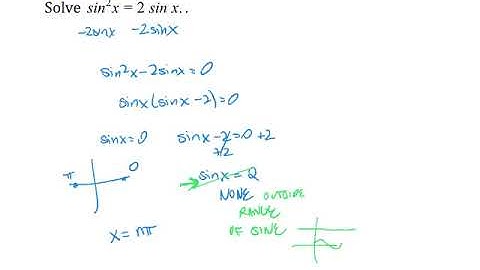 Solve sin²x = 2 sin x. .
-2sinx -2sinx
sin²x-2sinx=0
sinx(sinx-2)=0
sinx=0 sinx-2=0+2
+2
π 0
sinx=2
NONE OUTSIDE
RANGE
OF SINE
x=nπ